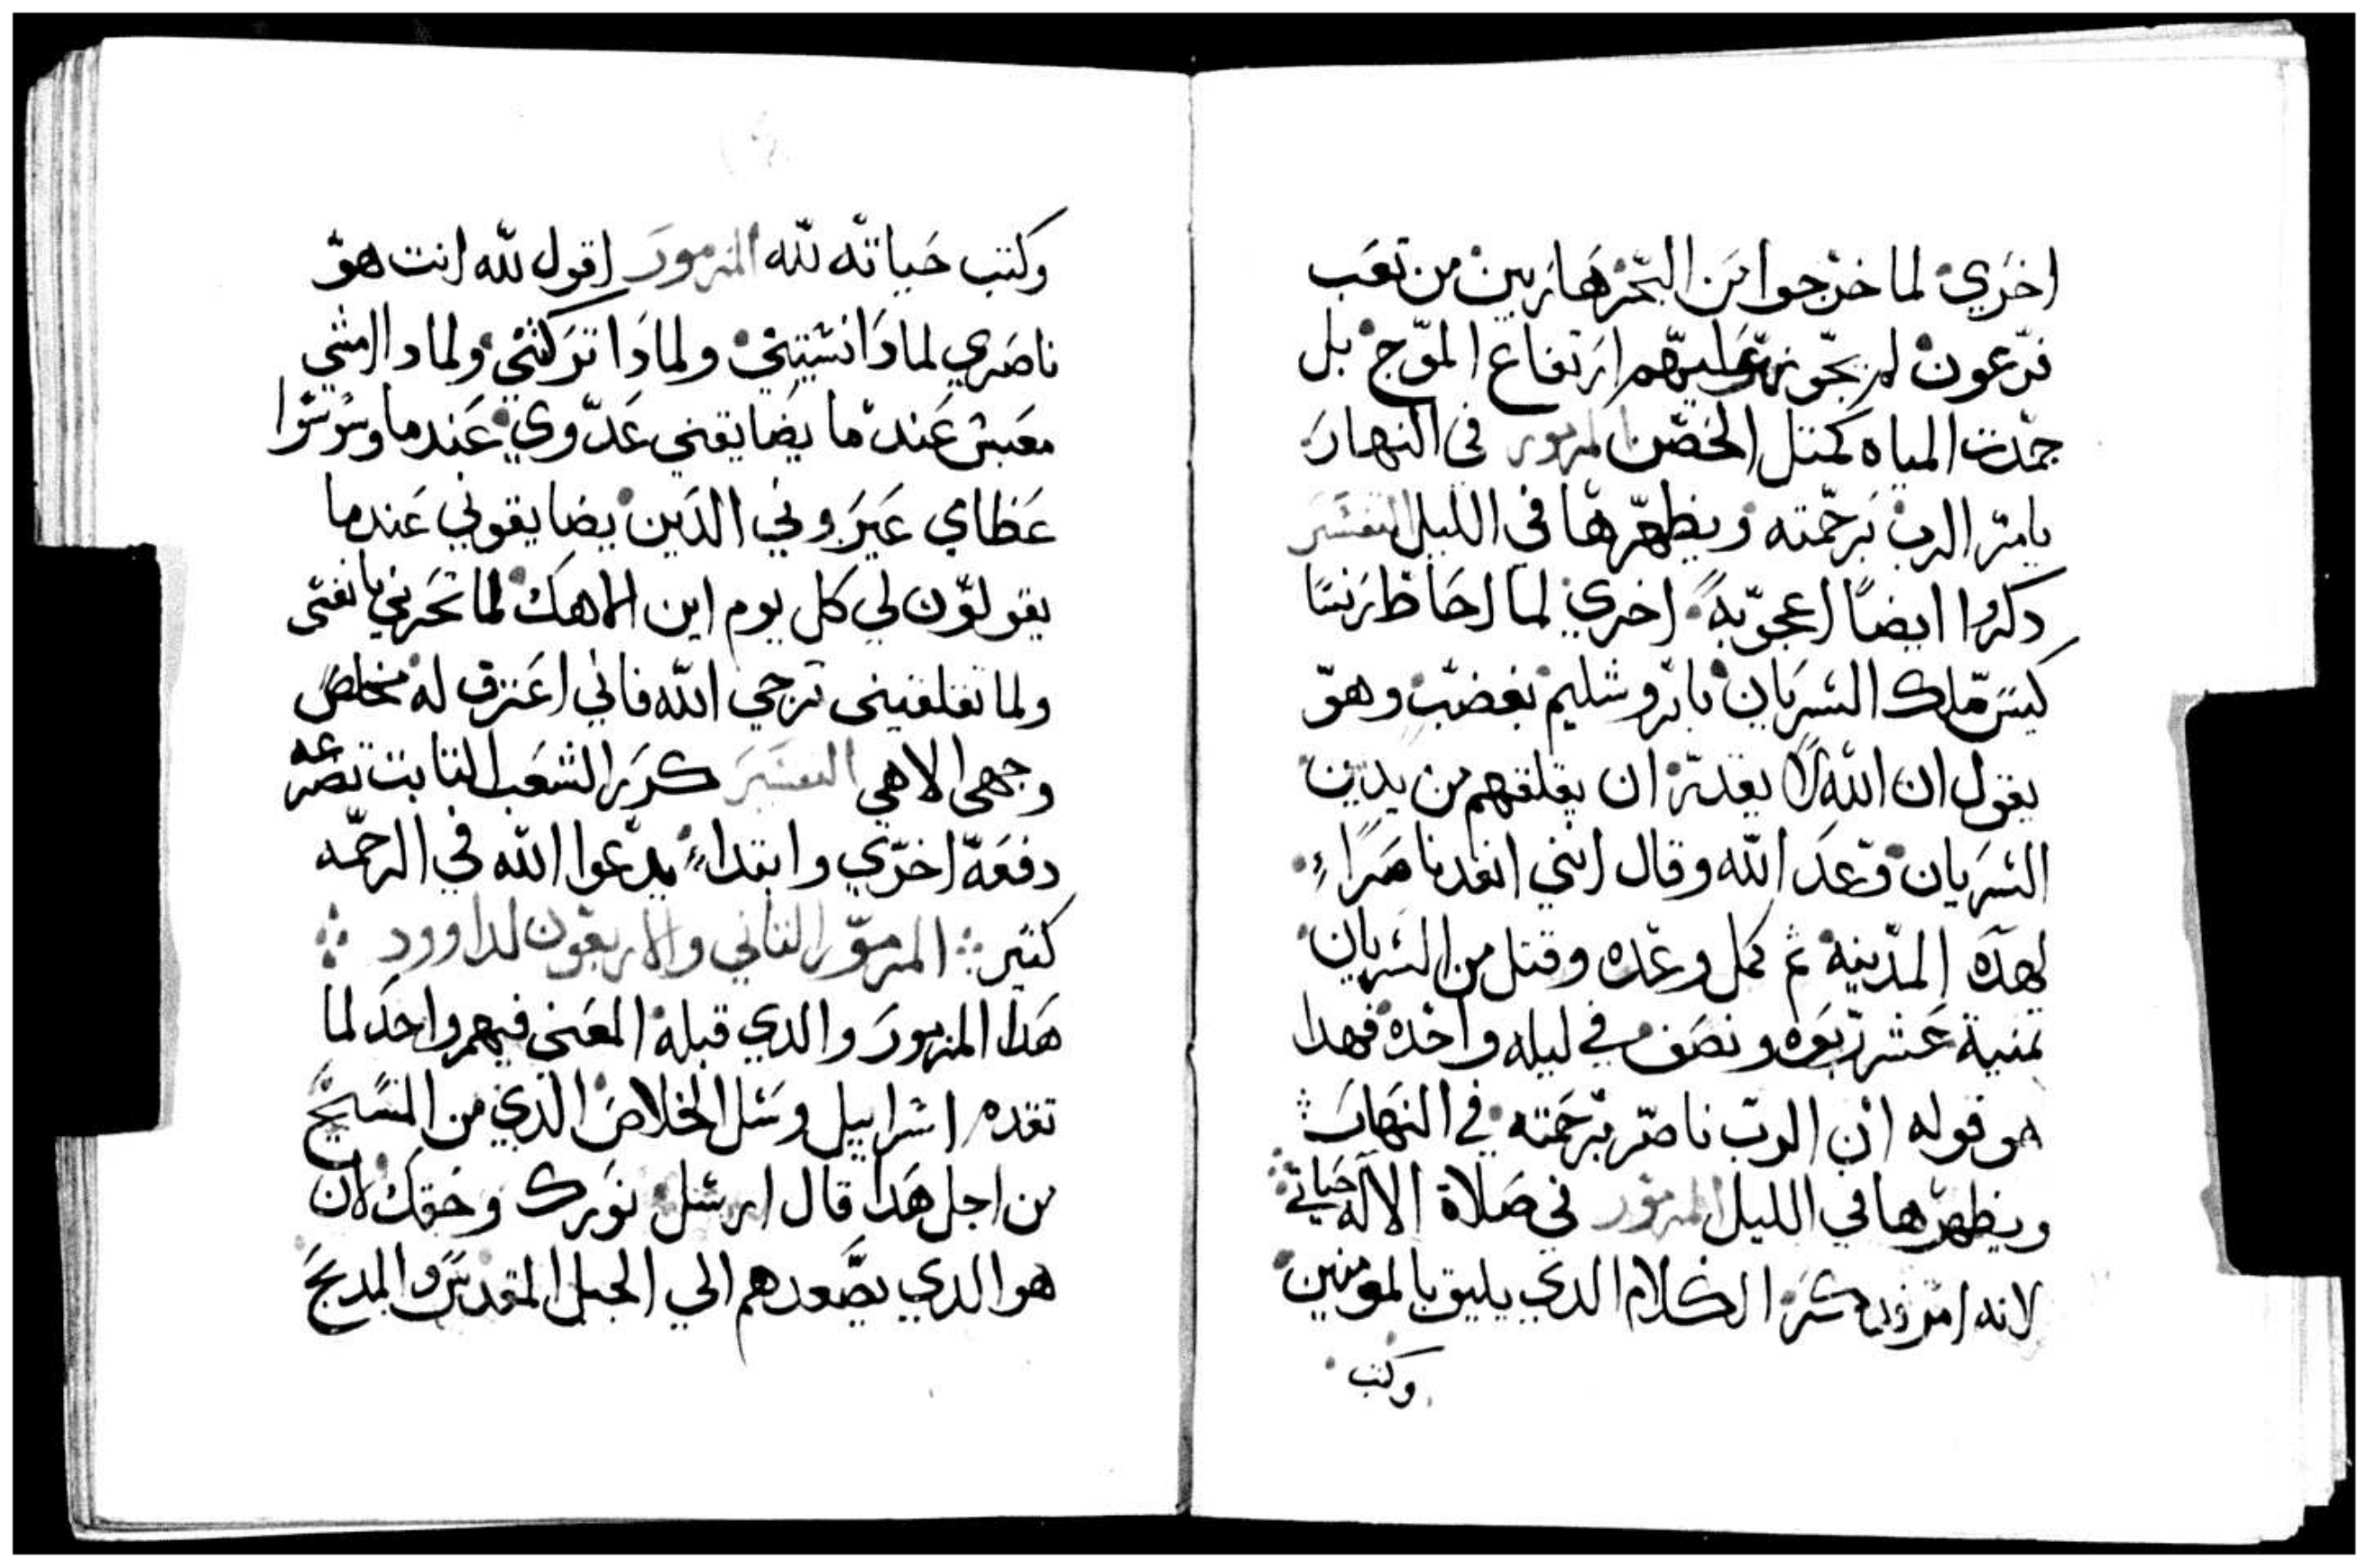 اخري لما خرجوا من البحر هاربين من تعب
فرعون لم يجوز عليهم ارتفاع الموج بل
جمدت المياه كمتل الحصن المزمور في النهار
يامر الرب برحمته ويظهرها في الليل التفسير
دكروا ايضًا اعجوبة اخري لما احاط رئيسًا
كيس ملك السريان باروشليم بغضب وهو
يقول ان الله لا يقدر ان يقلقهم من يدين
السريان وعد الله وقال انني انقد ناصرًا
لهده المدينة ثم كمل وعده وقتل من السريان
ثمنية عشر ربوه ونصف في ليله واحده فهدا
هو قوله ان الرب ناصر برحمته في النهار
ويظهرها في الليل المزمور في صلاة الاله حياتي
لانه امر الكلام الدي يليق بالمومنين
وكتب
وكتب حياته لله المزمور اقول لله انت هو
ناصري لمادا نسيتني ولمادا تركتني ولماد امشي
معبس عند ما يضايقني عدوي عند ما وسوسوا
عظامي عيروني الدين يضايقوني عند ما
يقولون لي كل يوم اين الاهك لما تحزني يا نفسي
ولما تقلقيني ترجي الله فاني اعترف له مخلص
وجهي الاهي التفسير كرر الشعب التابت تضرعه
دفعة اخري وابتداء يدعوا الله في الرحمه
كتير المزمور التاني والاربعون لداوود
هدا المزمور والدي قبله المعني فيهم واحد لما
تقدم اسراييل وسل الخلاص الدي من المسيح
من اجل هدا قال ارسل نورك وحقك لان
هو الدي يصعدهم الي الجبل المقدس والمدبح